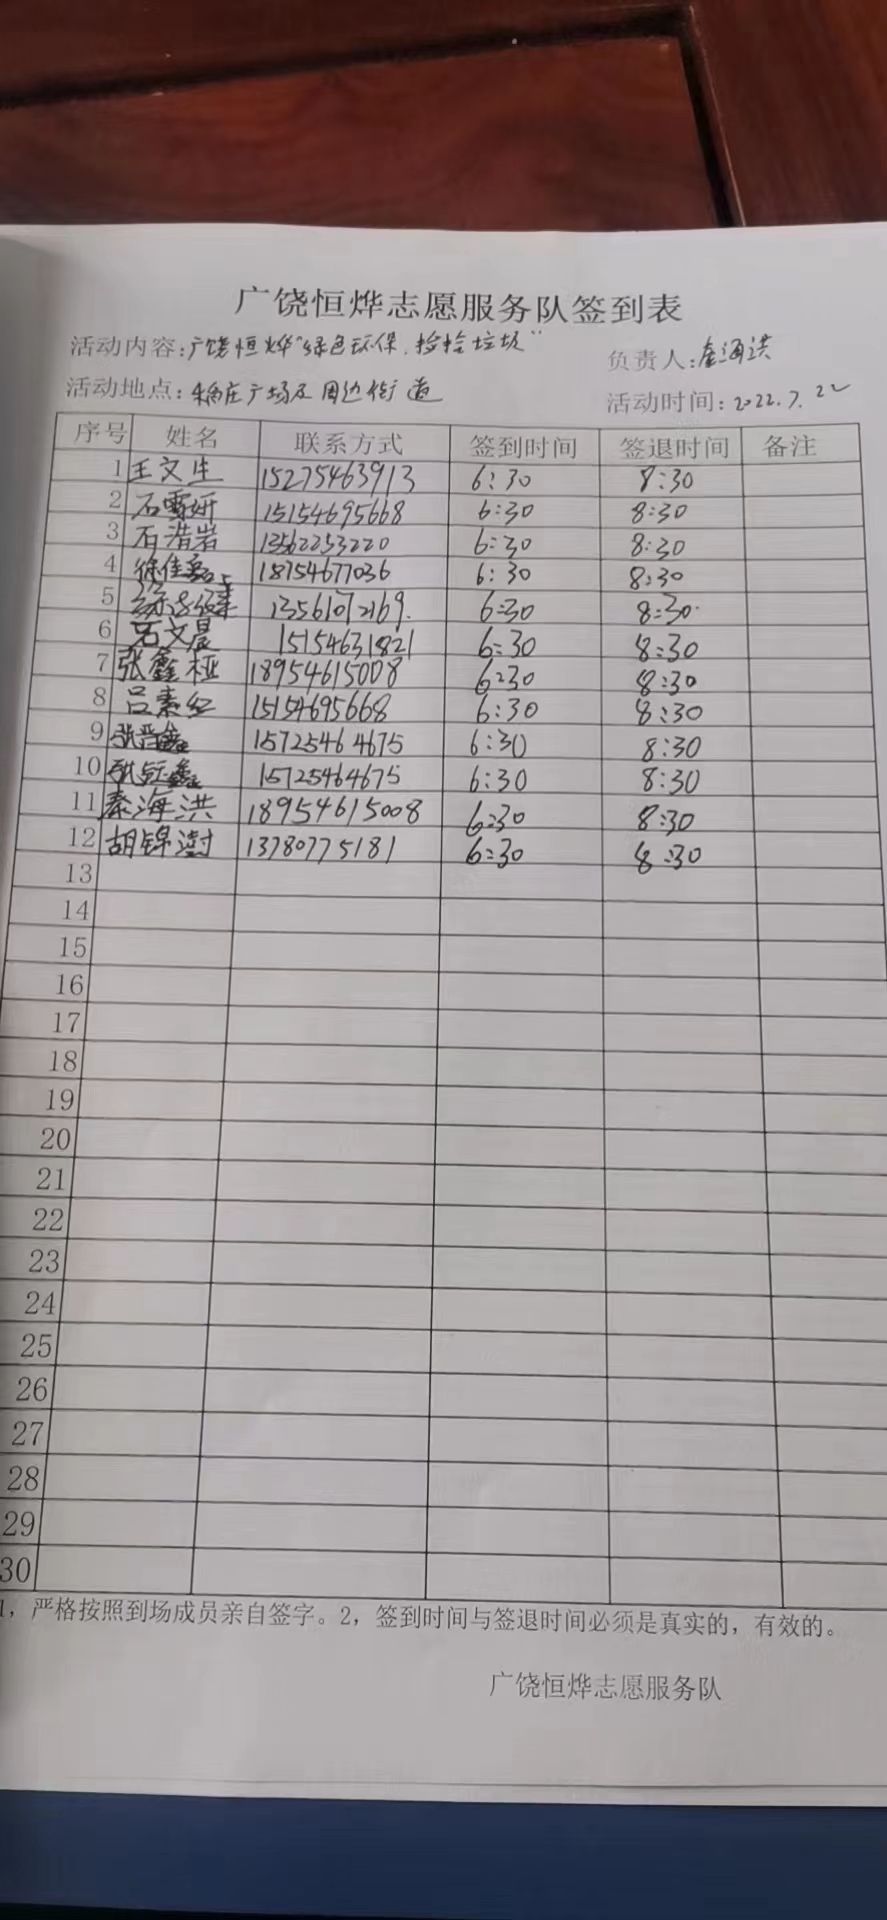 广饶恒烨志愿服务队签到表
活动内容:广饶恒烨“绿色环保.捡拾垃圾”
负责人:秦海洪
活动地点: 广场及周边街道
活动时间:2022.7.22
序号 姓名 联系方式 签到时间 签退时间 备注
1 王文生 15275463913 6:30 8:30
2 石雪妍 15154695668 6:30 8:30
3 石浩岩 13562253220 6:30 8:30
4 徐佳 18754677036 6:30 8:30
5 13561072169. 6:30 8:30.
6 石文晨 15154631821 6:30 8:30
7 张鑫桠 18954615008 6:30 8:30
8 吕素红 15154695668 6:30 8:30
9 张晋鑫 15725464675 6:30 8:30
10 张钰鑫 15725464675 6:30 8:30
11 秦海洪 18954615008 6:30 8:30
12 胡锦澍 13780775181 6:30 8:30
13
14
15
16
17
18
19
20
21
22
23
24
25
26
27
28
29
30
1，严格按照到场成员亲自签字。2，签到时间与签退时间必须是真实的，有效的。
广饶恒烨志愿服务队